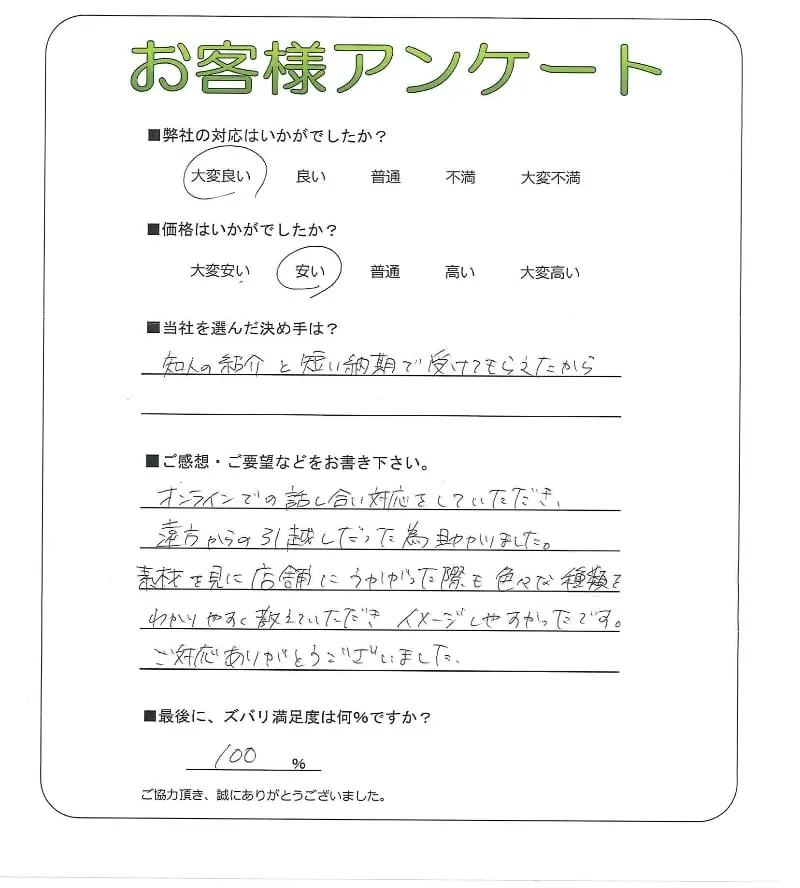 お客様アンケート
■弊社の対応はいかがでしたか？
大変良い 良い 普通 不満 大変不満
■価格はいかがでしたか？
大変安い 安い 普通 高い 大変高い
■当社を選んだ決め手は？
知人の紹介と短い納期で受けてもらえたから
■ご感想・ご要望などをお書き下さい。
オンラインでの話し合い対応をしていただき、
遠方からの引越しだった為助かりました。
素材を見に店舗にうかがった際も色々な種類を
わかりやすく教えていただきイメージしやすかったです。
ご対応ありがとうございました。
■最後に、ズバリ満足度は何%ですか？
100 %
ご協力頂き、誠にありがとうございました。